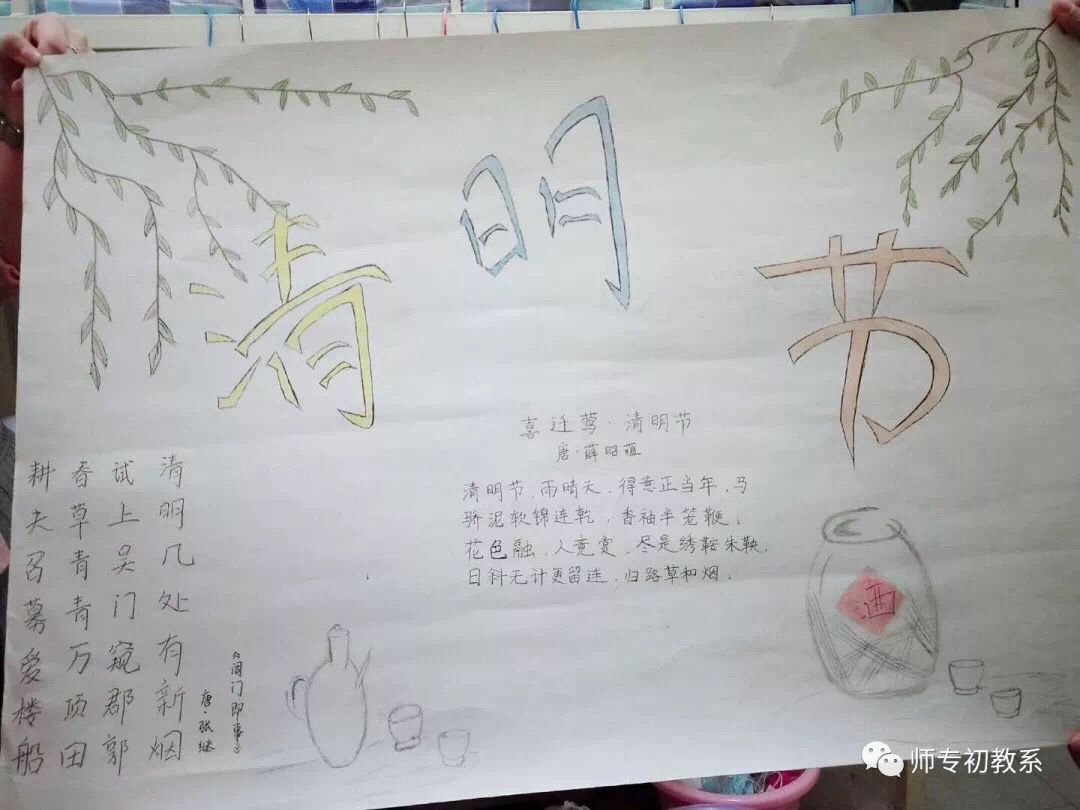 清明节
耕夫召募爱楼船
春草青青万顷田
试上吴门窥郡郭
清明几处有新烟
唐·张继
《阊门即事》
喜迁莺·清明节
唐·薛昭蕴
清明节，雨晴天，得意正当年，马
骄泥软锦连乾，香袖半笼鞭。
花色融，人竟赏，尽是绣鞍朱鞅。
日斜无计更留连，归路草和烟。
酒
师专初教系